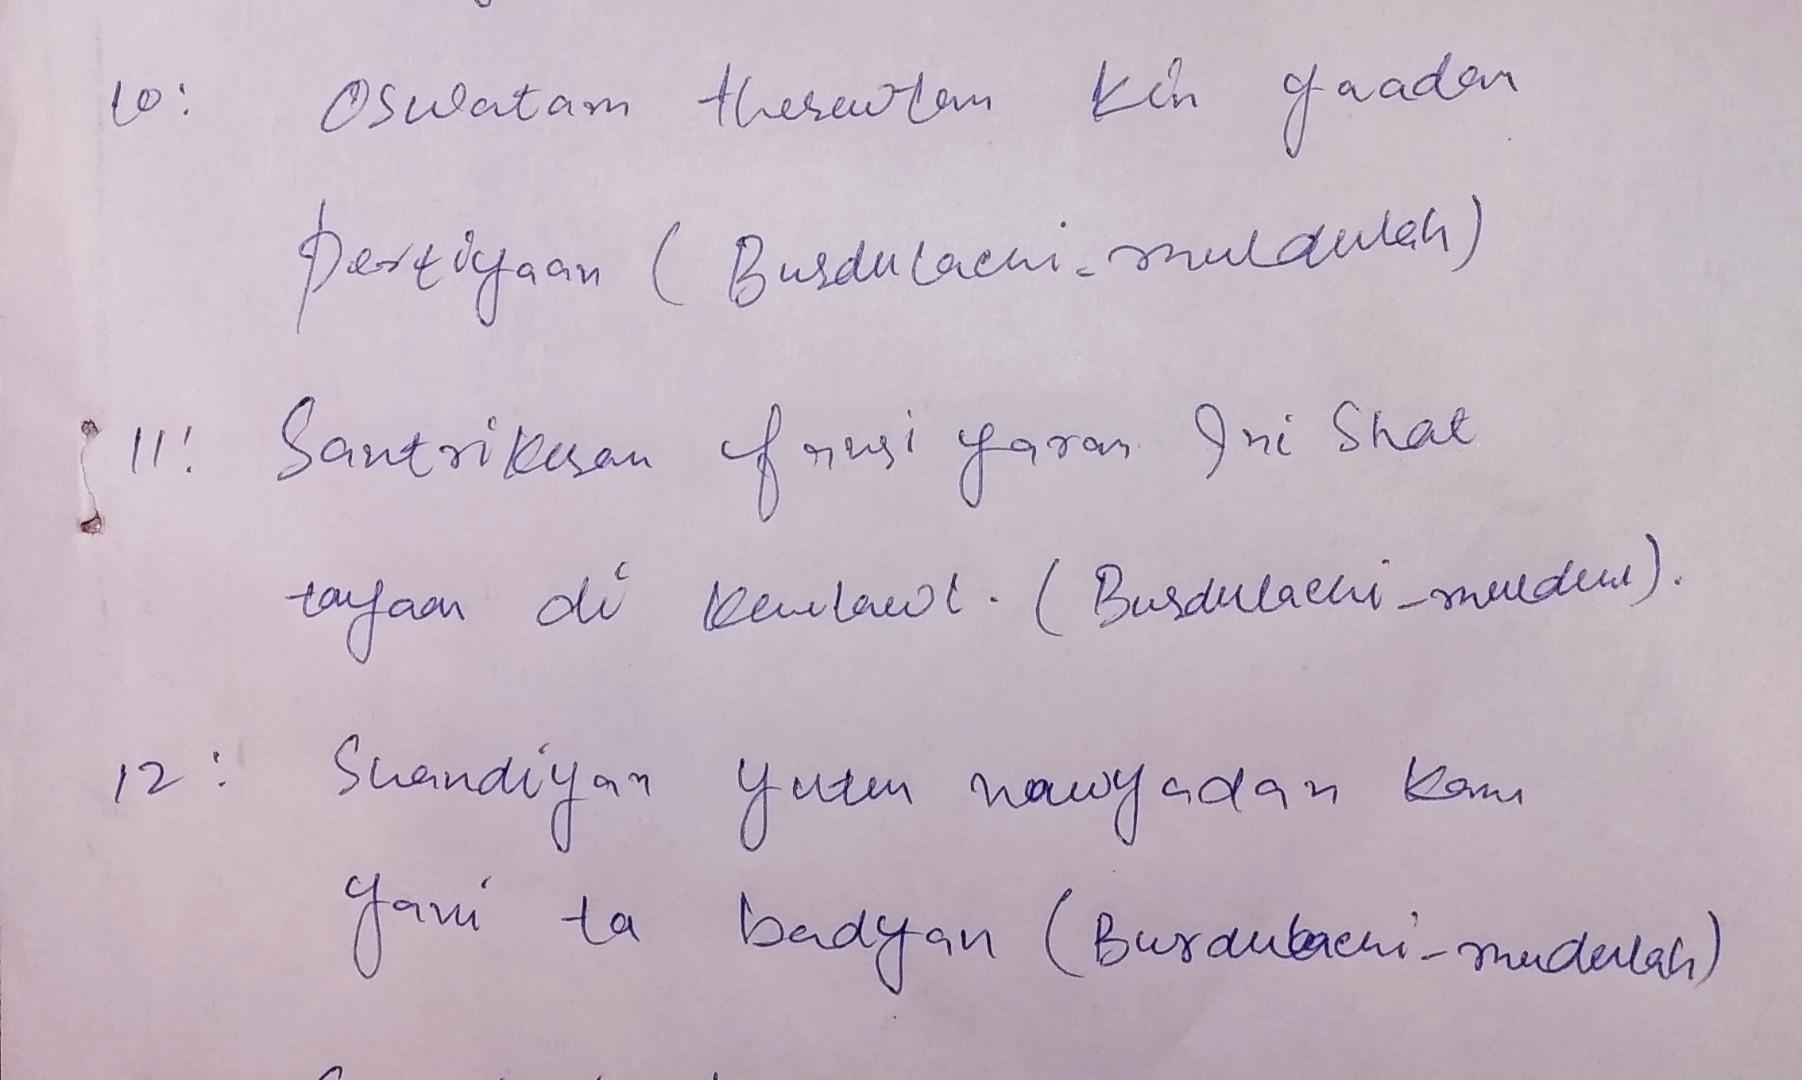 10: Oswatam therawtan Kin yaadan
pertiyaan (Burdulachi-muldulah)
11: Santrikusan frusi yaran Ini Shat
tayaan di Kenlawl. (Burdulachi-muldul).
12: Suandiyan yuten nawyadan Kam
yani ta badyan (Burdulachi-mudulah)